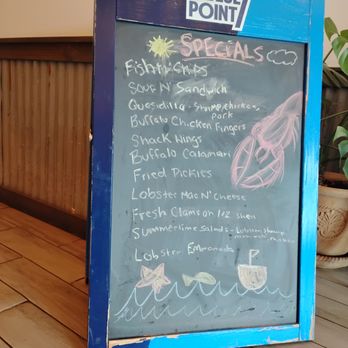 POINT
SPECIALS
Fish n' Chips
Soup N' Sandwich
Quesadilla - Shrimp, chicken,
Pork
Buffalo Chicken Fingers
Shack Wings
Buffalo Calamari
Fried Pickles
Lobster Mac N' Cheese
Fresh Clams on 1/2 Shell
Summertime Salads - Lobster, Shrimp
Lobster Empanada